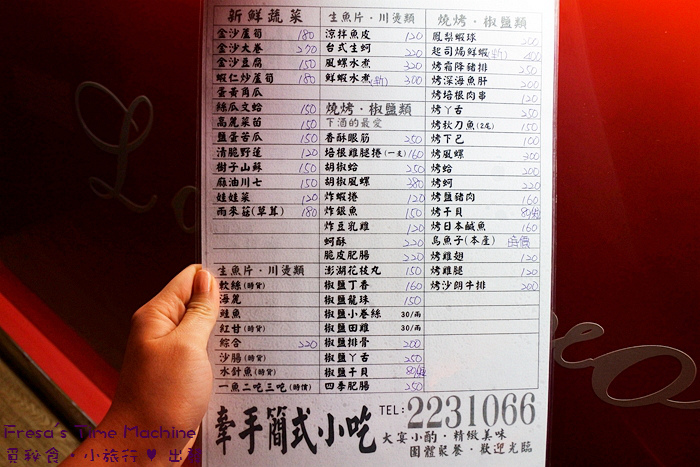 新鮮蔬菜
金沙蘆筍 180
金沙大卷 270
金沙豆腐 150
蝦仁炒蘆筍 180
蛋黃角瓜
絲瓜文蛤 150
高麗菜苗 150
鹽蛋苦瓜 150
清脆野蓮 120
樹子山蘇 150
麻油川七 150
娃娃菜 120
雨來菇(草茸) 180
生魚片．川燙類
軟絲(時價)
海麗
鮭魚
紅甘(時價)
綜合 220
沙腸(時價)
水針魚(時價)
一魚二吃三吃(時價)
生魚片．川燙類
涼拌魚皮 120
台式生蚵 220
風螺水煮 320
鮮蝦水煮(斤) 300
燒烤．椒鹽類
下酒的最愛
香酥眼筋 250
培根雞腿捲(一支) 160
胡椒蛤 250
胡椒風螺 380
炸蝦捲 120
炸銀魚 150
炸豆乳雞 120
蚵酥 220
脆皮肥腸 220
澎湖花枝丸 150
椒鹽丁香 160
椒鹽龍珠 150
椒鹽小卷絲 30/兩
椒鹽田雞 30/兩
椒鹽排骨 200
椒鹽丫舌 250
椒鹽干貝
四季肥腸 250
燒烤．椒鹽類
鳳梨蝦球 200
起司焗鮮蝦 400
烤霜降豬排 250
烤深海魚肝 200
烤培根肉串 120
烤丫舌 250
烤秋刀魚(2尾) 150
烤下巴 100
烤風螺 350
烤蛤 200
烤蚵 220
烤鹽豬肉 160
烤干貝
烤日本鹹魚 160
烏魚子(本產) 時價
烤雞翅 120
烤雞腿 120
烤沙朗牛排 200
牽手簡式小吃
TEL:2231066
大宴小酌．精緻美味
團體聚餐．歡迎光臨
Fresa's Time Machine
覓秘食．小旅行♥出發